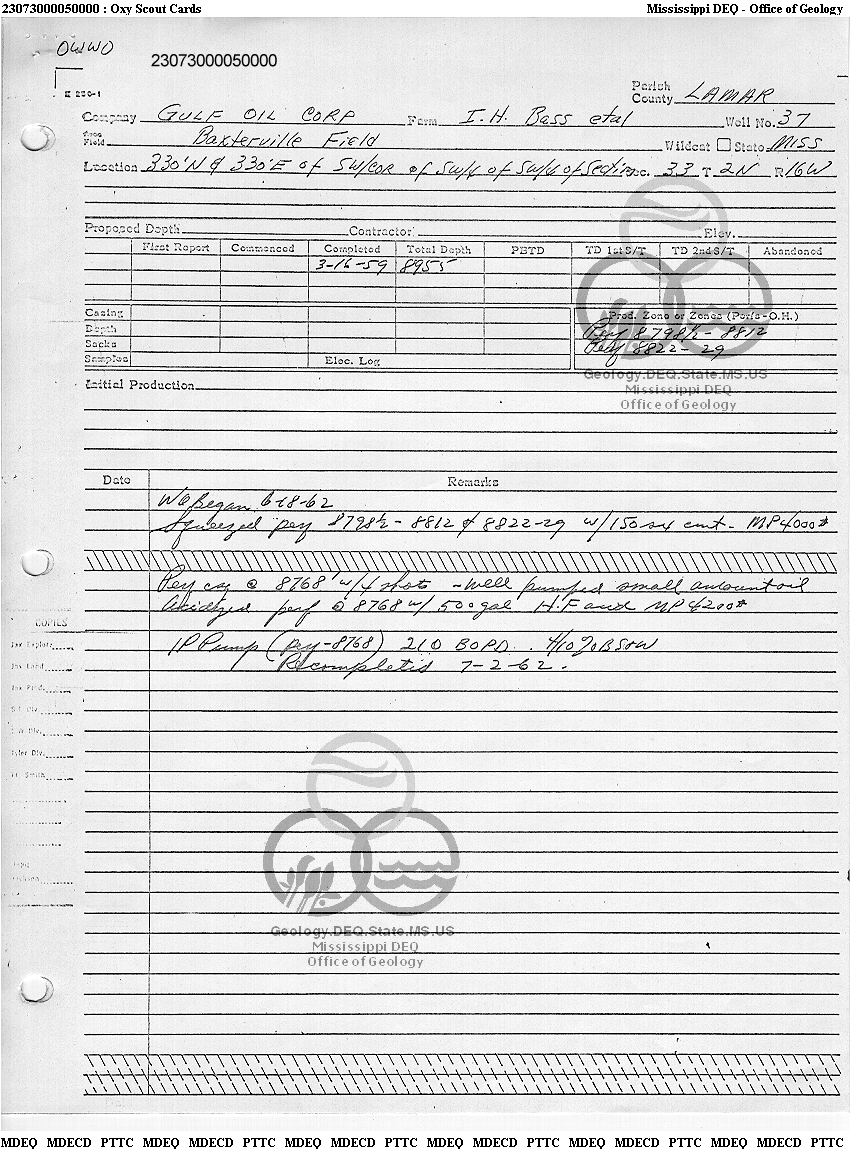 23073000050000 : Oxy Scout Cards Mississippi DEQ - Office of Geology
OWWO
23073000050000
E 250-1
Parish
County LAMAR
Company GULF OIL CORP Farm I.H. Bass etal Well No. 37
Area
Field Baxterville Field Wildcat State Miss
Location 330'N & 330'E of SW/COR of SW/4 of SW/4 of Section Sec. 33 T 2N R 16W
Proposed Depth Contractor Elev.
First Report Commenced Completed Total Depth PBTD TD 1st S/T TD 2nd S/T Abandoned
3-16-59 8955
Casing Prod. Zone or Zones (Perfs-O.H.)
Depth Perf 8798½ - 8812
Sacks Perf 8822 - 29
Samples Elec. Log
Geology.DEQ.State.MS.US
Mississippi DEQ
Office of Geology
Initial Production
Date Remarks
WO Began 6-18-62
Squeezed perf 8798½ - 8812 & 8822-29 w/150 sx cmt - MP 4000#
Perf csg @ 8768' w/4 shots - well pumped small amount oil
Acidized perf @ 8768 w/ 500 gal H.F acid MP 4200#
COPIES
Jax Explor.
IP Pump (perf-8768) 210 BOPD. 4/10 % BS&W
Jax Land
Recompleted 7-2-62.
Jax Prod.
Tyler Div.
Ft Smith
Geology.DEQ.State.MS.US
Mississippi DEQ
Office of Geology
MDEQ MDECD PTTC MDEQ MDECD PTTC MDEQ MDECD PTTC MDEQ MDECD PTTC MDEQ MDECD PTTC MDEQ MDECD PTTC